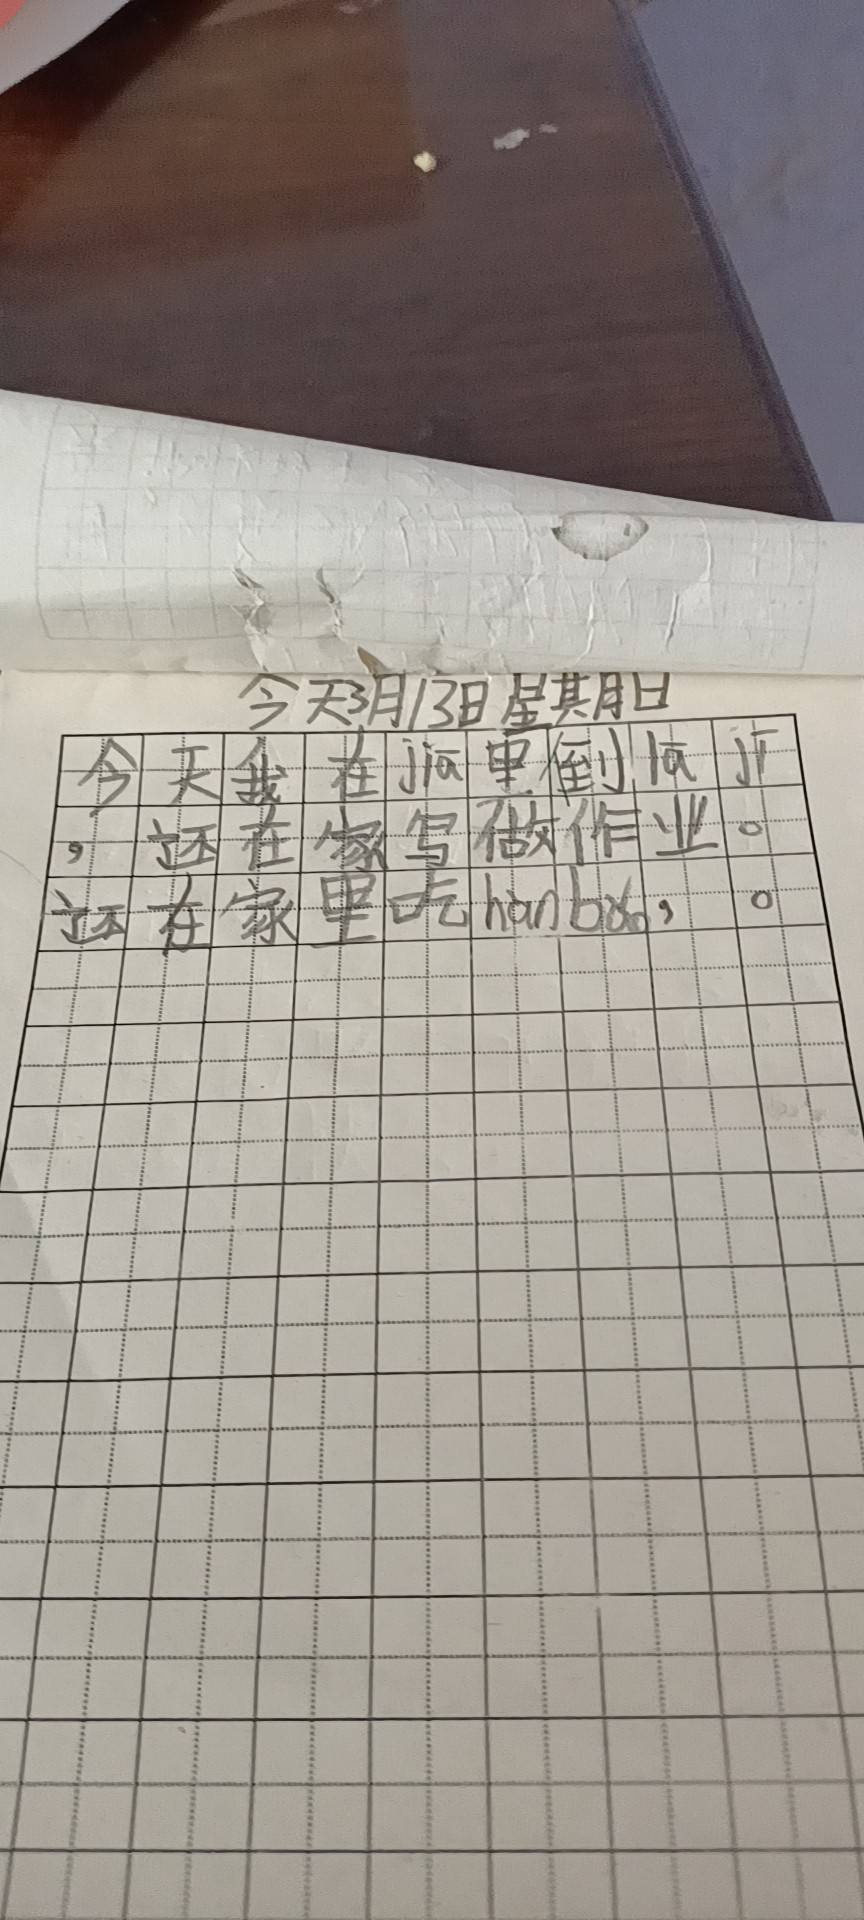 今天3月13日星其月日
今天我在jia里倒la ji
，还在家写做作业。
还在家里吃hanbao，。